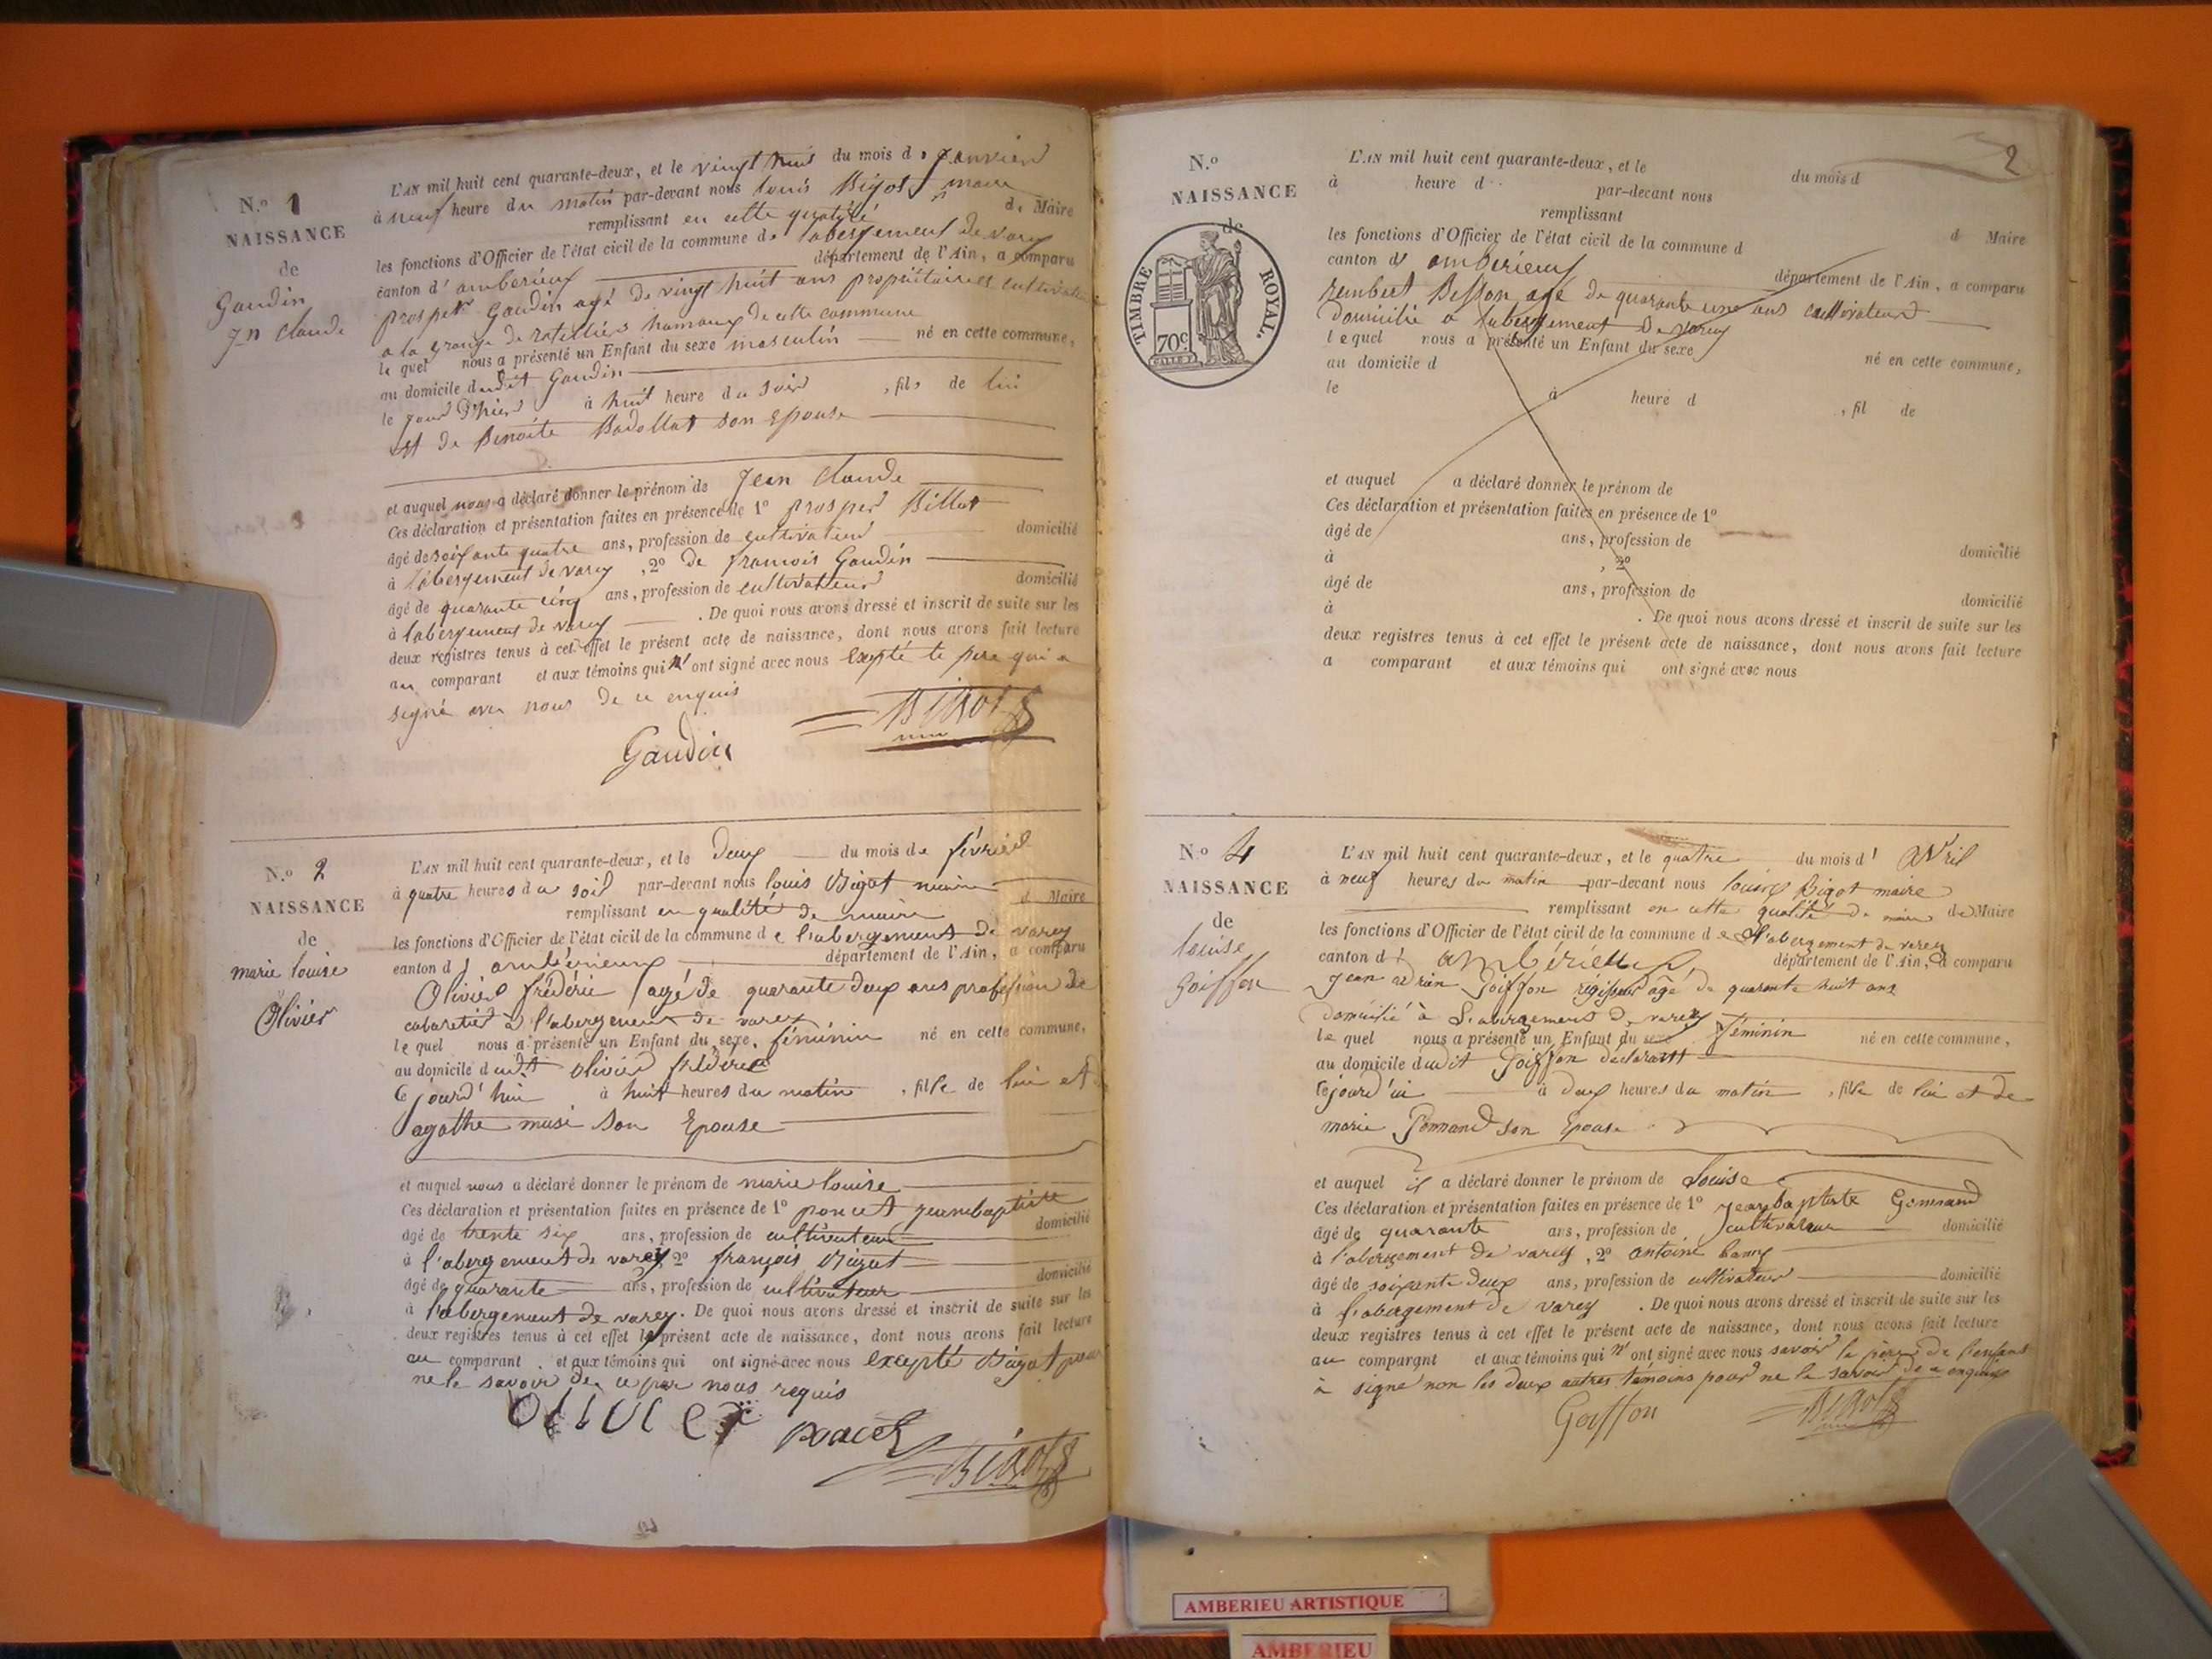 N.o 1
NAISSANCE
de
Gaudin
Jn Claude
L'AN mil huit cent quarante-deux, et le vingt huit du mois de Janvier
à neuf heure du matin par-devant nous louis Bigot maire
d. Maire
remplissant en cette qualité
les fonctions d'Officier de l'état civil de la commune de labergement de varey
canton d'amberieux département de l'Ain, a comparu
prosper Gaudin agé de vingt huit ans propriétaire et cultivateur
a la grange de hameau de cette commune
le quel nous a présenté un Enfant du sexe masculin né en cette commune,
au domicile dudit Gaudin
le jour d'hier à huit heure du soir , fils de lui
et de Benoite Badollat son Epouse
et auquel nous a déclaré donner le prénom de Jean Claude
Ces déclaration et présentation faites en présence de 1o prosper Billat
âgé de soixante quatre ans, profession de cultivateur domicilié
à l'abergement de varey , 2o de francois Gaudin
âgé de quarante cinq ans, profession de cultivateur domicilié
à labergement de varey . De quoi nous avons dressé et inscrit de suite sur les
deux registres tenus à cet effet le présent acte de naissance, dont nous avons fait lecture
au comparant et aux témoins qui n'ont signé avec nous Excepté le pere qui a
signé avec nous de ce enquis
Gaudin
BIGOT
N.o 2
NAISSANCE
de
marie louise
Olivier
L'AN mil huit cent quarante-deux, et le deux du mois de février
à quatre heures du soir par-devant nous louis Bigot maire
d Maire
remplissant en qualité de maire
les fonctions d'Officier de l'état civil de la commune de l'abergement de varey
canton d' ambérieux département de l'Ain, a comparu
Olivier frédéric agé de quarante deux ans profession de
cabaretier à l'abergement de varey
le quel nous a présenté un Enfant du sexe féminin né en cette commune,
au domicile dudit olivier frédéric
ce jourd'hui à huit heures du matin , fille de lui et
agathe musi son Epouse
et auquel nous a déclaré donner le prénom de marie louise
Ces déclaration et présentation faites en présence de 1o poncet jeanbaptiste
âgé de trente six ans, profession de cultivateur domicilié
à l'abergement de varey 2o françois Bigot
âgé de quarante ans, profession de cultivateur domicilié
à l'abergement de varey. De quoi nous avons dressé et inscrit de suite sur les
deux registres tenus à cet effet le présent acte de naissance, dont nous avons fait lecture
au comparant et aux témoins qui ont signé avec nous excepté Bigot pour
ne le savoir de ce par nous requis
Olivier
poncet
BIGOT
2
N.o
NAISSANCE
de
TIMBRE ROYAL.
70c
L'AN mil huit cent quarante-deux, et le du mois d
à heure d par-devant nous
remplissant
d Maire
les fonctions d'Officier de l'état civil de la commune d
canton d' amberieux département de l'Ain, a comparu
Besson agé de quarante un ans cultivateur
domicilié a labergement de varey
lequel nous a présenté un Enfant du sexe né en cette commune,
au domicile d
le à heure d , fil de
et auquel a déclaré donner le prénom de
Ces déclaration et présentation faites en présence de 1o
âgé de ans, profession de domicilié
à , 2o
âgé de ans, profession de domicilié
à . De quoi nous avons dressé et inscrit de suite sur les
deux registres tenus à cet effet le présent acte de naissance, dont nous avons fait lecture
a comparant et aux témoins qui ont signé avec nous
N.o 4
NAISSANCE
de
louise
Goiffon
L'AN mil huit cent quarante-deux, et le quatre du mois d' avril
à neuf heures du matin par-devant nous louis Bigot maire
remplissant en cette qualité de maire de Maire
les fonctions d'Officier de l'état civil de la commune de l'abergement de varey
canton d' ambérieux département de l'Ain, a comparu
Jean adrien Goiffon régisseur agé de quarante huit ans
domicilié à L'abergement de varey
le quel nous a présenté un Enfant du sexe féminin né en cette commune,
au domicile dudit Goiffon déclarant
à deux heures du matin , fille de lui et de
marie son Epouse
et auquel il a déclaré donner le prénom de Louise
Ces déclaration et présentation faites en présence de 1o jean baptiste
âgé de quarante ans, profession de cultivateur domicilié
à l'abergement de varey , 2o antoine
âgé de soixante deux ans, profession de cultivateur domicilié
à l'abergement de varey . De quoi nous avons dressé et inscrit de suite sur les
deux registres tenus à cet effet le présent acte de naissance, dont nous avons fait lecture
au comparant et aux témoins qui n'ont signé avec nous savoir le père de l'enfant
à signé non les deux autres témoins pour ne le savoir de ce enquis
Goiffon
BIGOT
AMBERIEU ARTISTIQUE
AMBERIEU